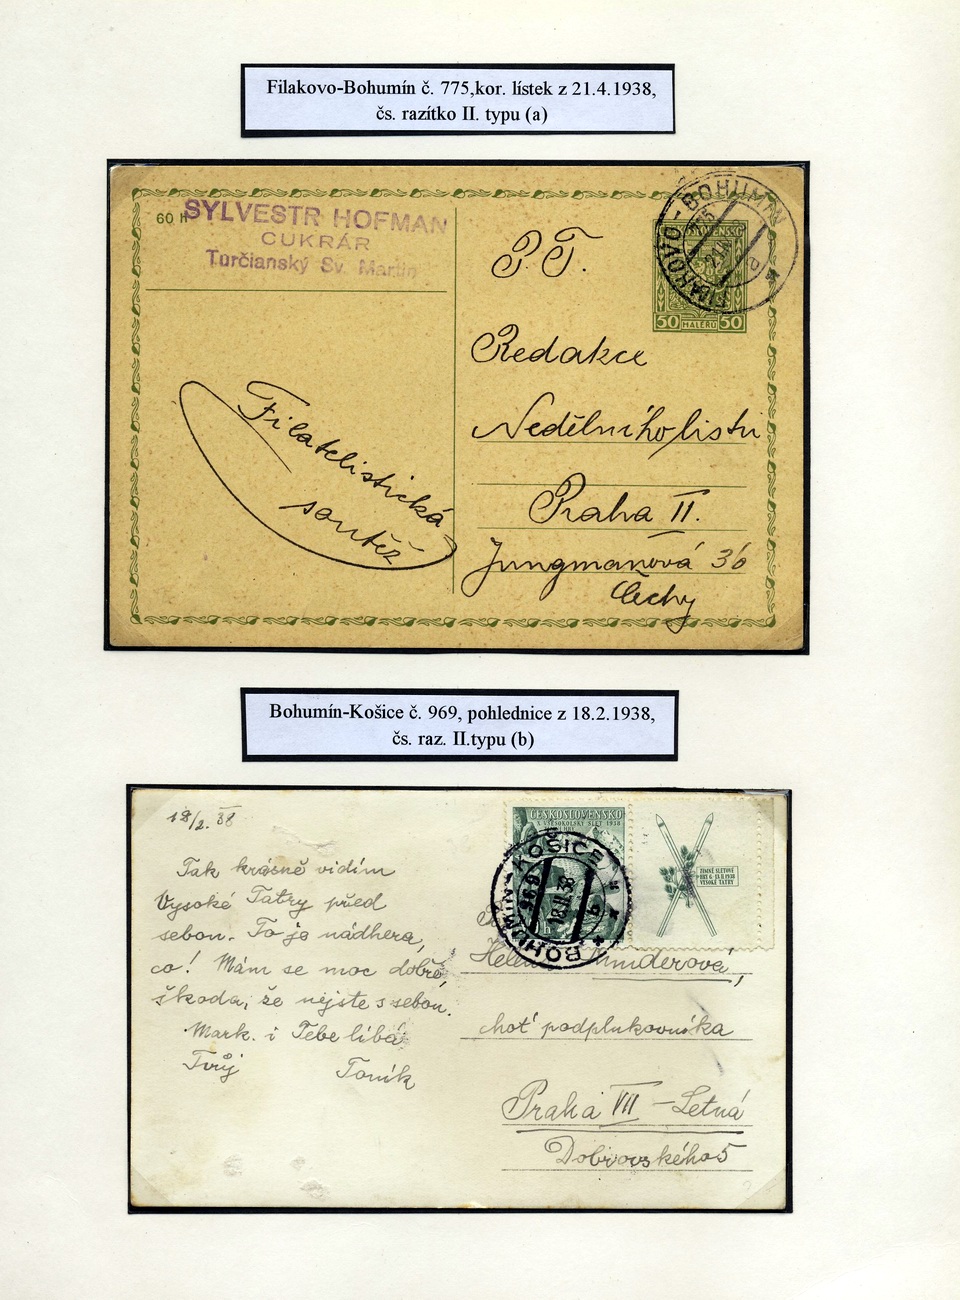 Filakovo-Bohumín č. 775,kor. lístek z 21.4.1938,
čs. razítko II. typu (a)
60 h
SYLVESTR HOFMAN
CUKRÁR
Turčianský Sv. Martin
FILAKOVO - BOHUMÍN
775
a
50 HALÉŘŮ 50
P. T.
Redakce
Nedělního listu
Praha II.
Jungmanová 36
Čechy
Filatelistická
soutěž
Bohumín-Košice č. 969, pohlednice z 18.2.1938,
čs. raz. II.typu (b)
18/2. 38
Tak krásně vidím
Vysoké Tatry před
sebou. To je nádhera,
co! Mám se moc dobře,
škoda, že nejste s sebou.
Mark. i Tebe líbá
Tvůj Toník
ČESKOSLOVENSKO
X. VŠESOKOLSKÝ SLET 1938
BOHUMÍN - KOŠICE
969
18.II.38
b
ZIMNÍ SLETOVÉ
HRY 6-18.II.1938
VYSOKÉ TATRY
choť podplukovníka
Praha VII - Letná
Dobrovského 5